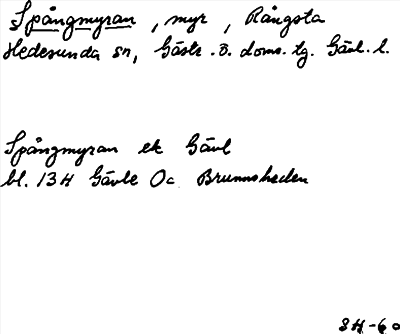 Spångmyran, myr, Rångsta
Hedesunda sn, Gästr. Ö. doms. tg. Gävl. l.
Spångmyran ek Gävl
bl. 13H Gävle Oc Brunnsheden